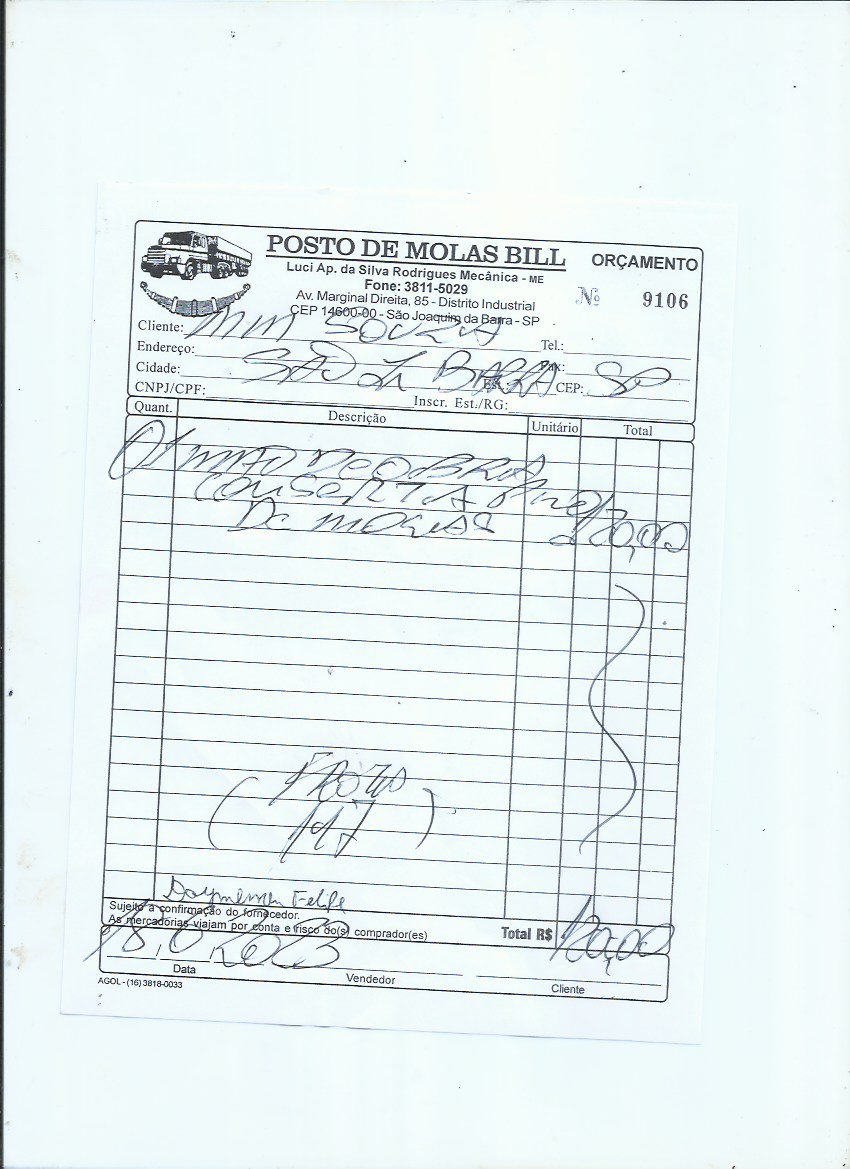 POSTO DE MOLAS BILL
ORÇAMENTO
Luci Ap. da Silva Rodrigues Mecânica - ME
Fone: 3811-5029
Nº 9106
Av. Marginal Direita, 85 - Distrito Industrial
CEP 14600-00 - São Joaquim da Barra - SP
Cliente: MM SOUZA Tel.:
Endereço: Fax:
Cidade: SÃO J. BARRA Est.: CEP: SP
CNPJ/CPF: Inscr. Est./RG:
Quant. Descrição Unitário Total
01 MÃO DE OBRA
CONSERTA
De molas 120,00
FROTA
(147)
Felipe
Sujeito a confirmação do fornecedor.
As mercadorias viajam por conta e risco do(s) comprador(es)
Total R$ 120,00
Data Vendedor Cliente
AGOL - (16) 3818-0033